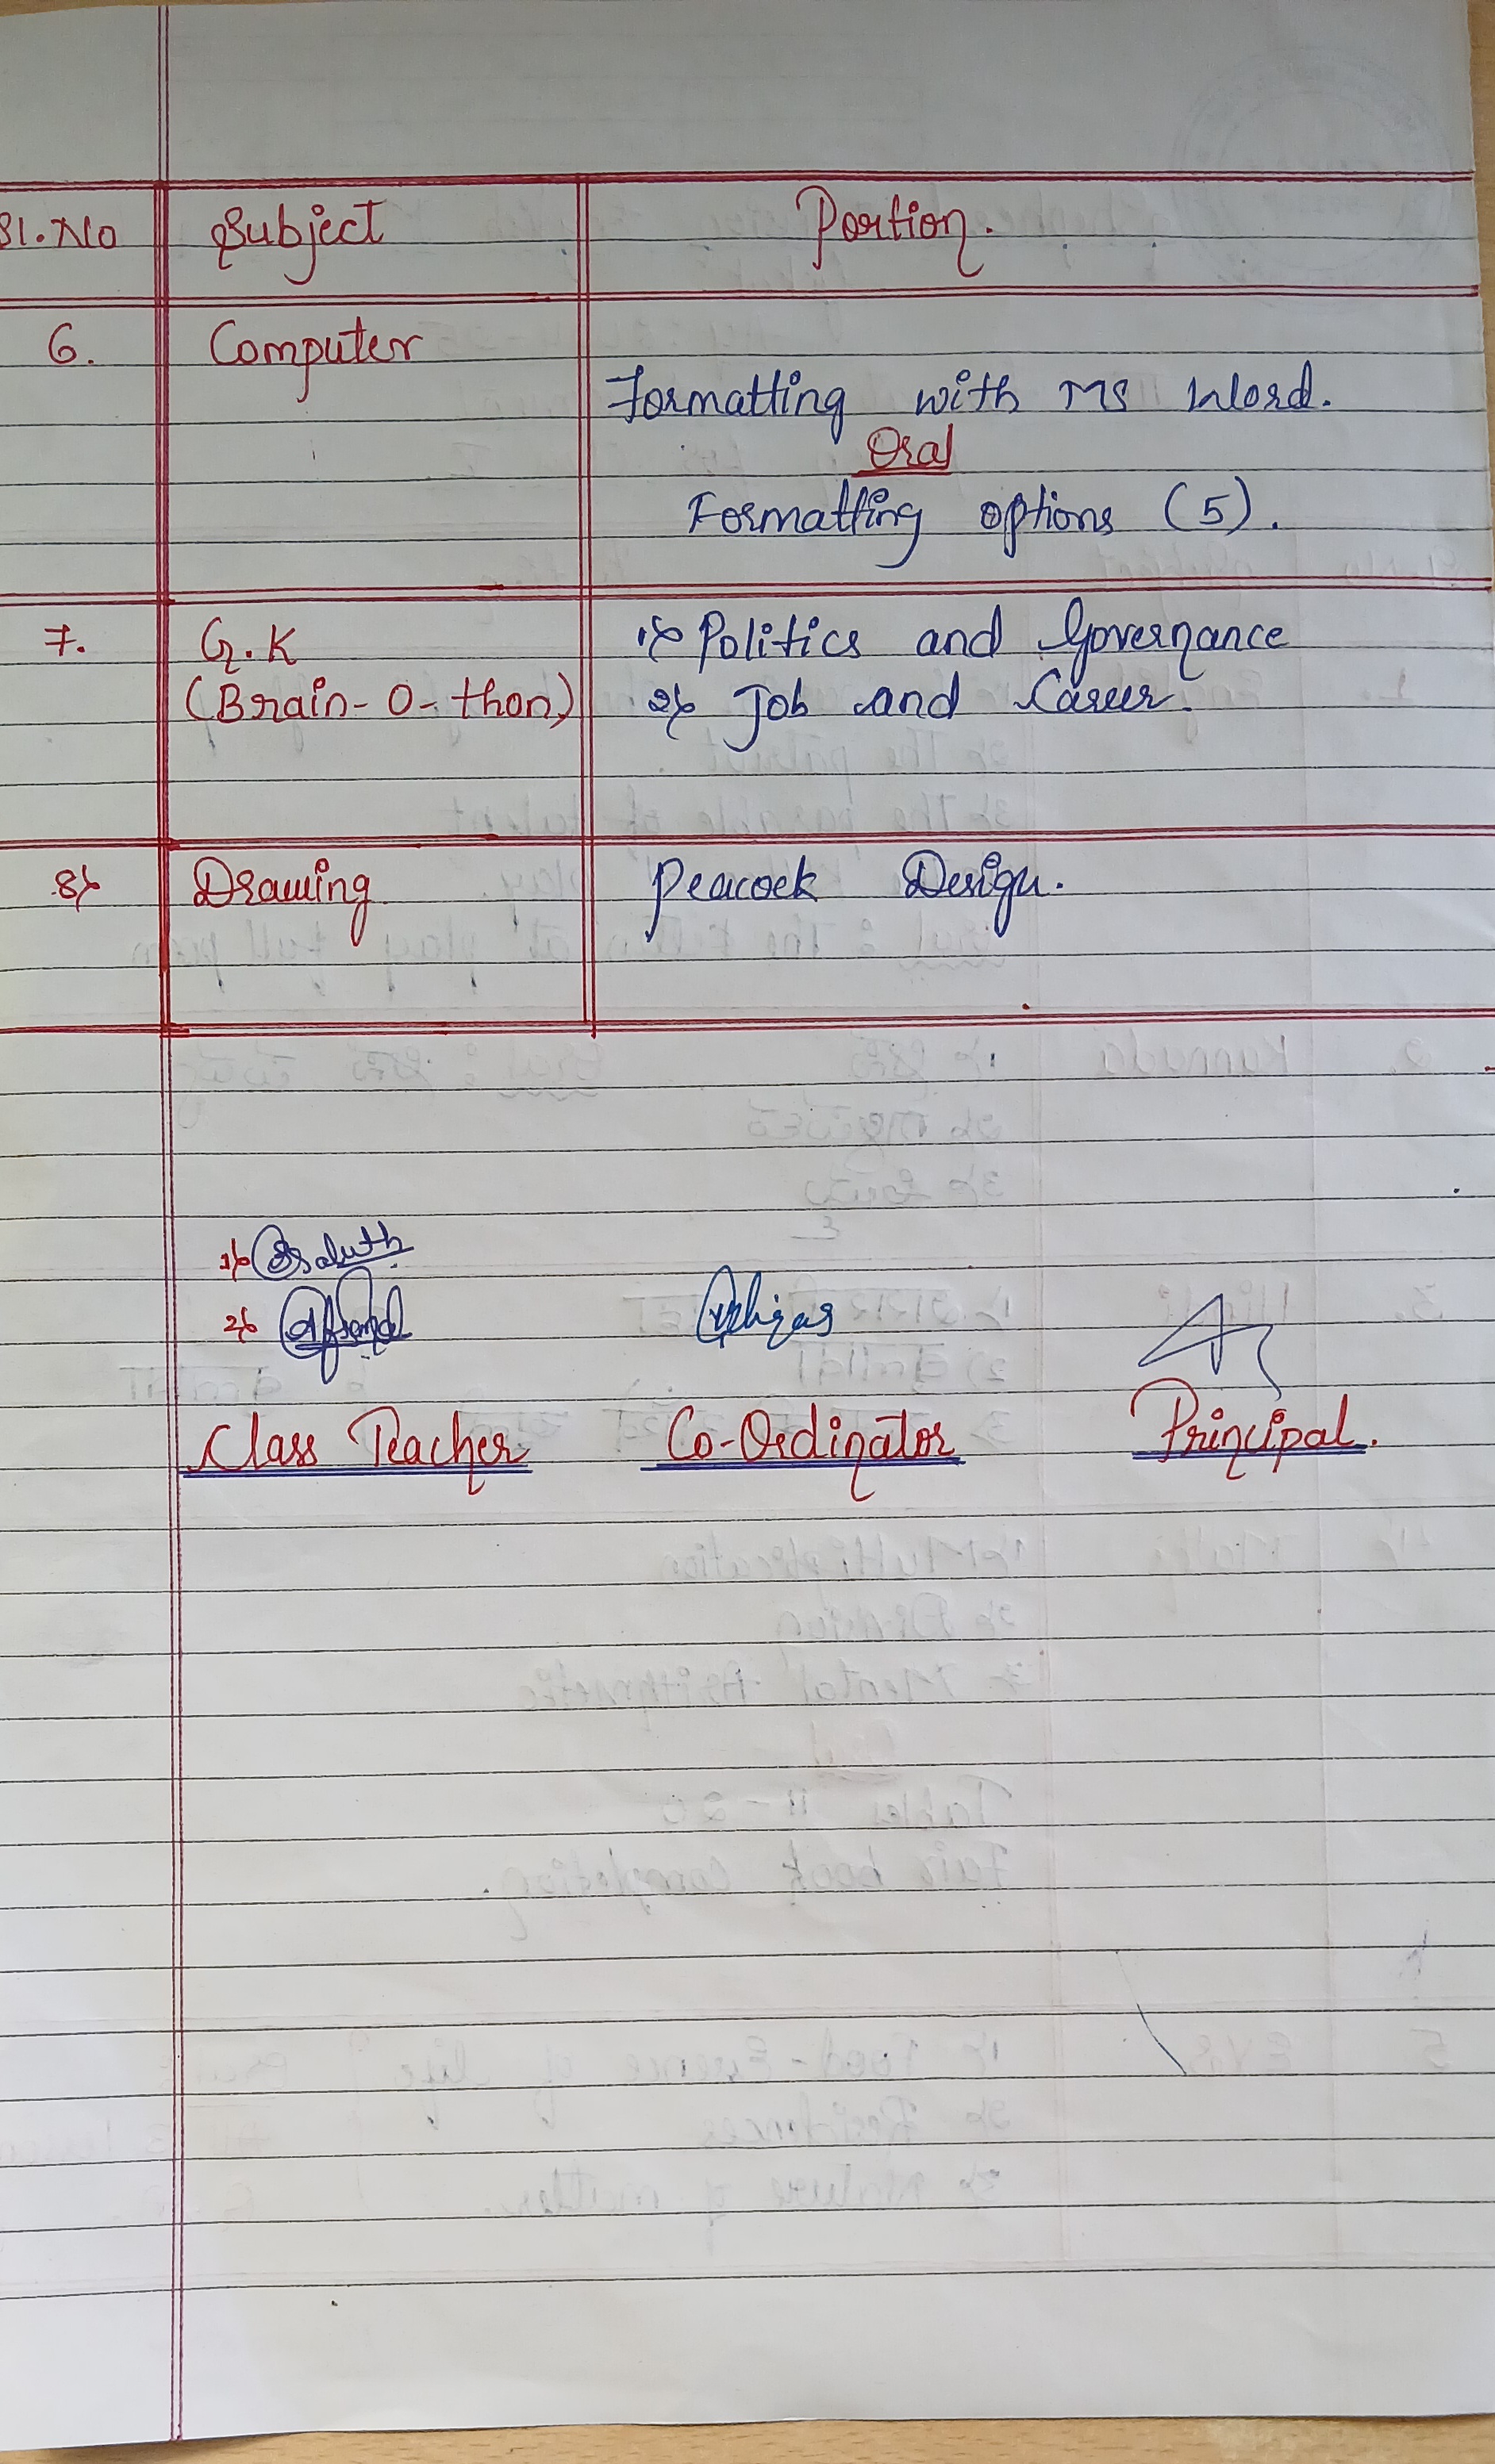 Sl.No Subject Portion.
6. Computer
Formatting with MS Word.
Oral
Formatting options (5).
7. G.K 1) Politics and Governance
(Brain-O-thon) 2) Job and Career.
8) Drawing Peacock Design.
1)
2)
Class Teacher Co-Ordinator Principal.